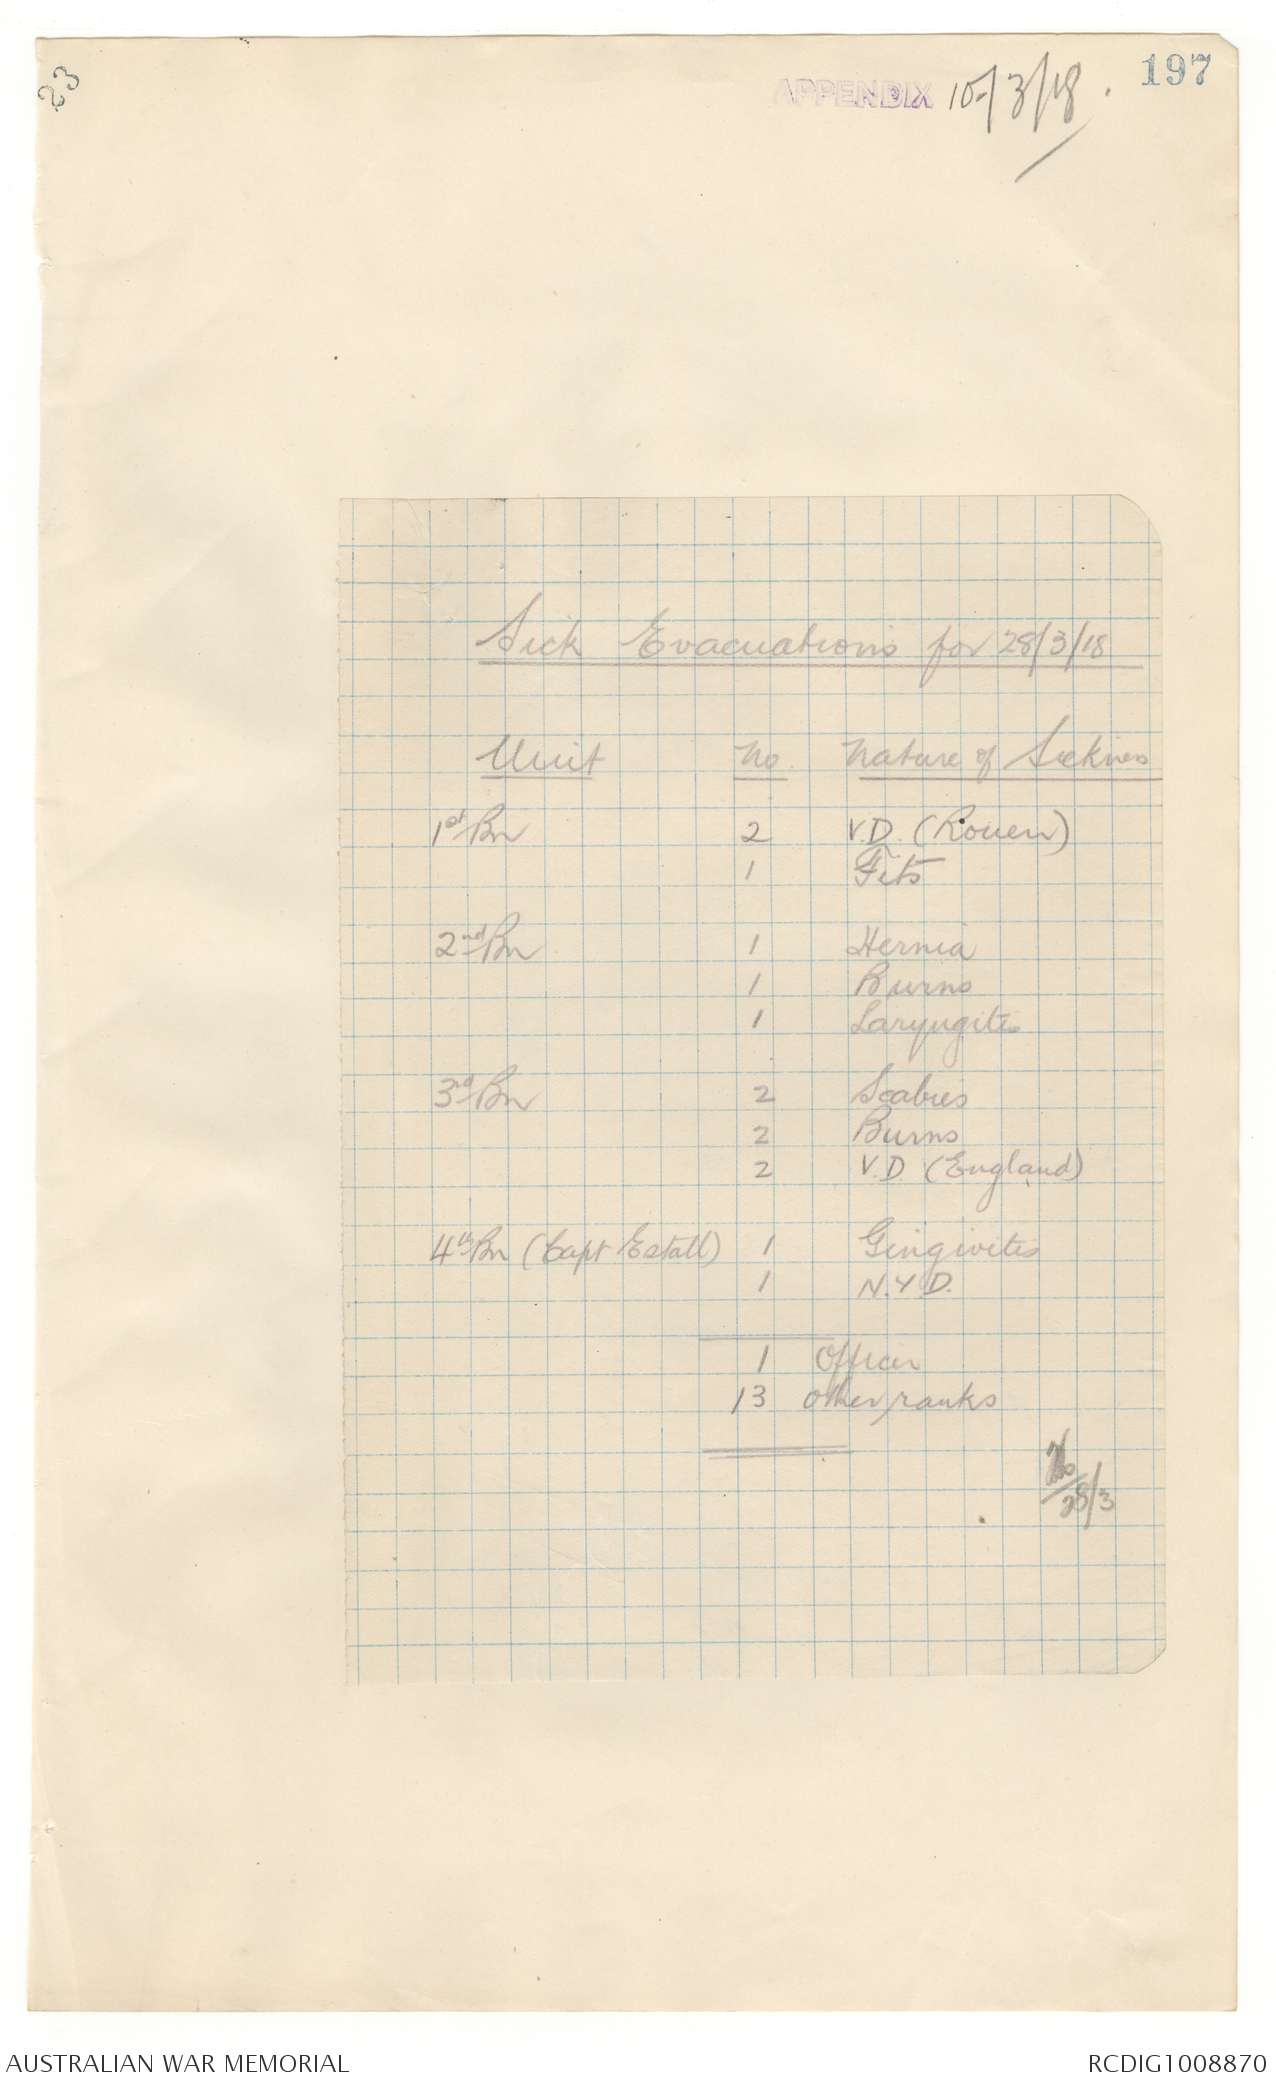 23
APPENDIX 10/3/18.
197
Sick Evacuations for 28/3/18
Unit No. Nature of Sickness
1st Bn 2 V.D. (Rouen)
1 Fits
2nd Bn 1 Hernia
1 Burns
1 Laryngitis
3rd Bn 2 Scabies
2 Burns
2 V.D. (England)
4th Bn (Capt Estall) 1 Gingivitis
1 N.Y.D.
1 Officer
13 other ranks
28/3
AUSTRALIAN WAR MEMORIAL
RCDIG1008870